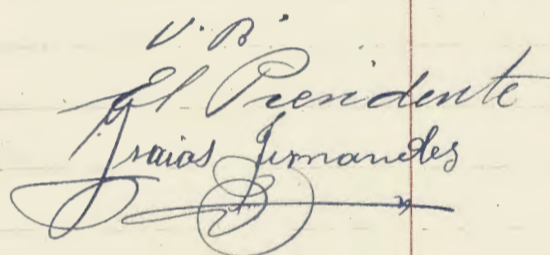 V. B.
El Presidente
Isaias Fernandes